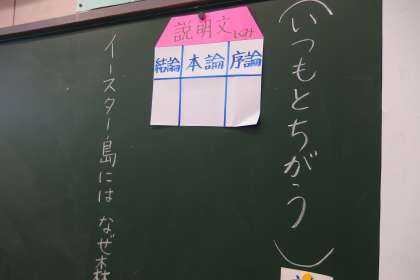 (いつもとちがう)
説明文
序論
本論
結論
イースター島には なぜ森